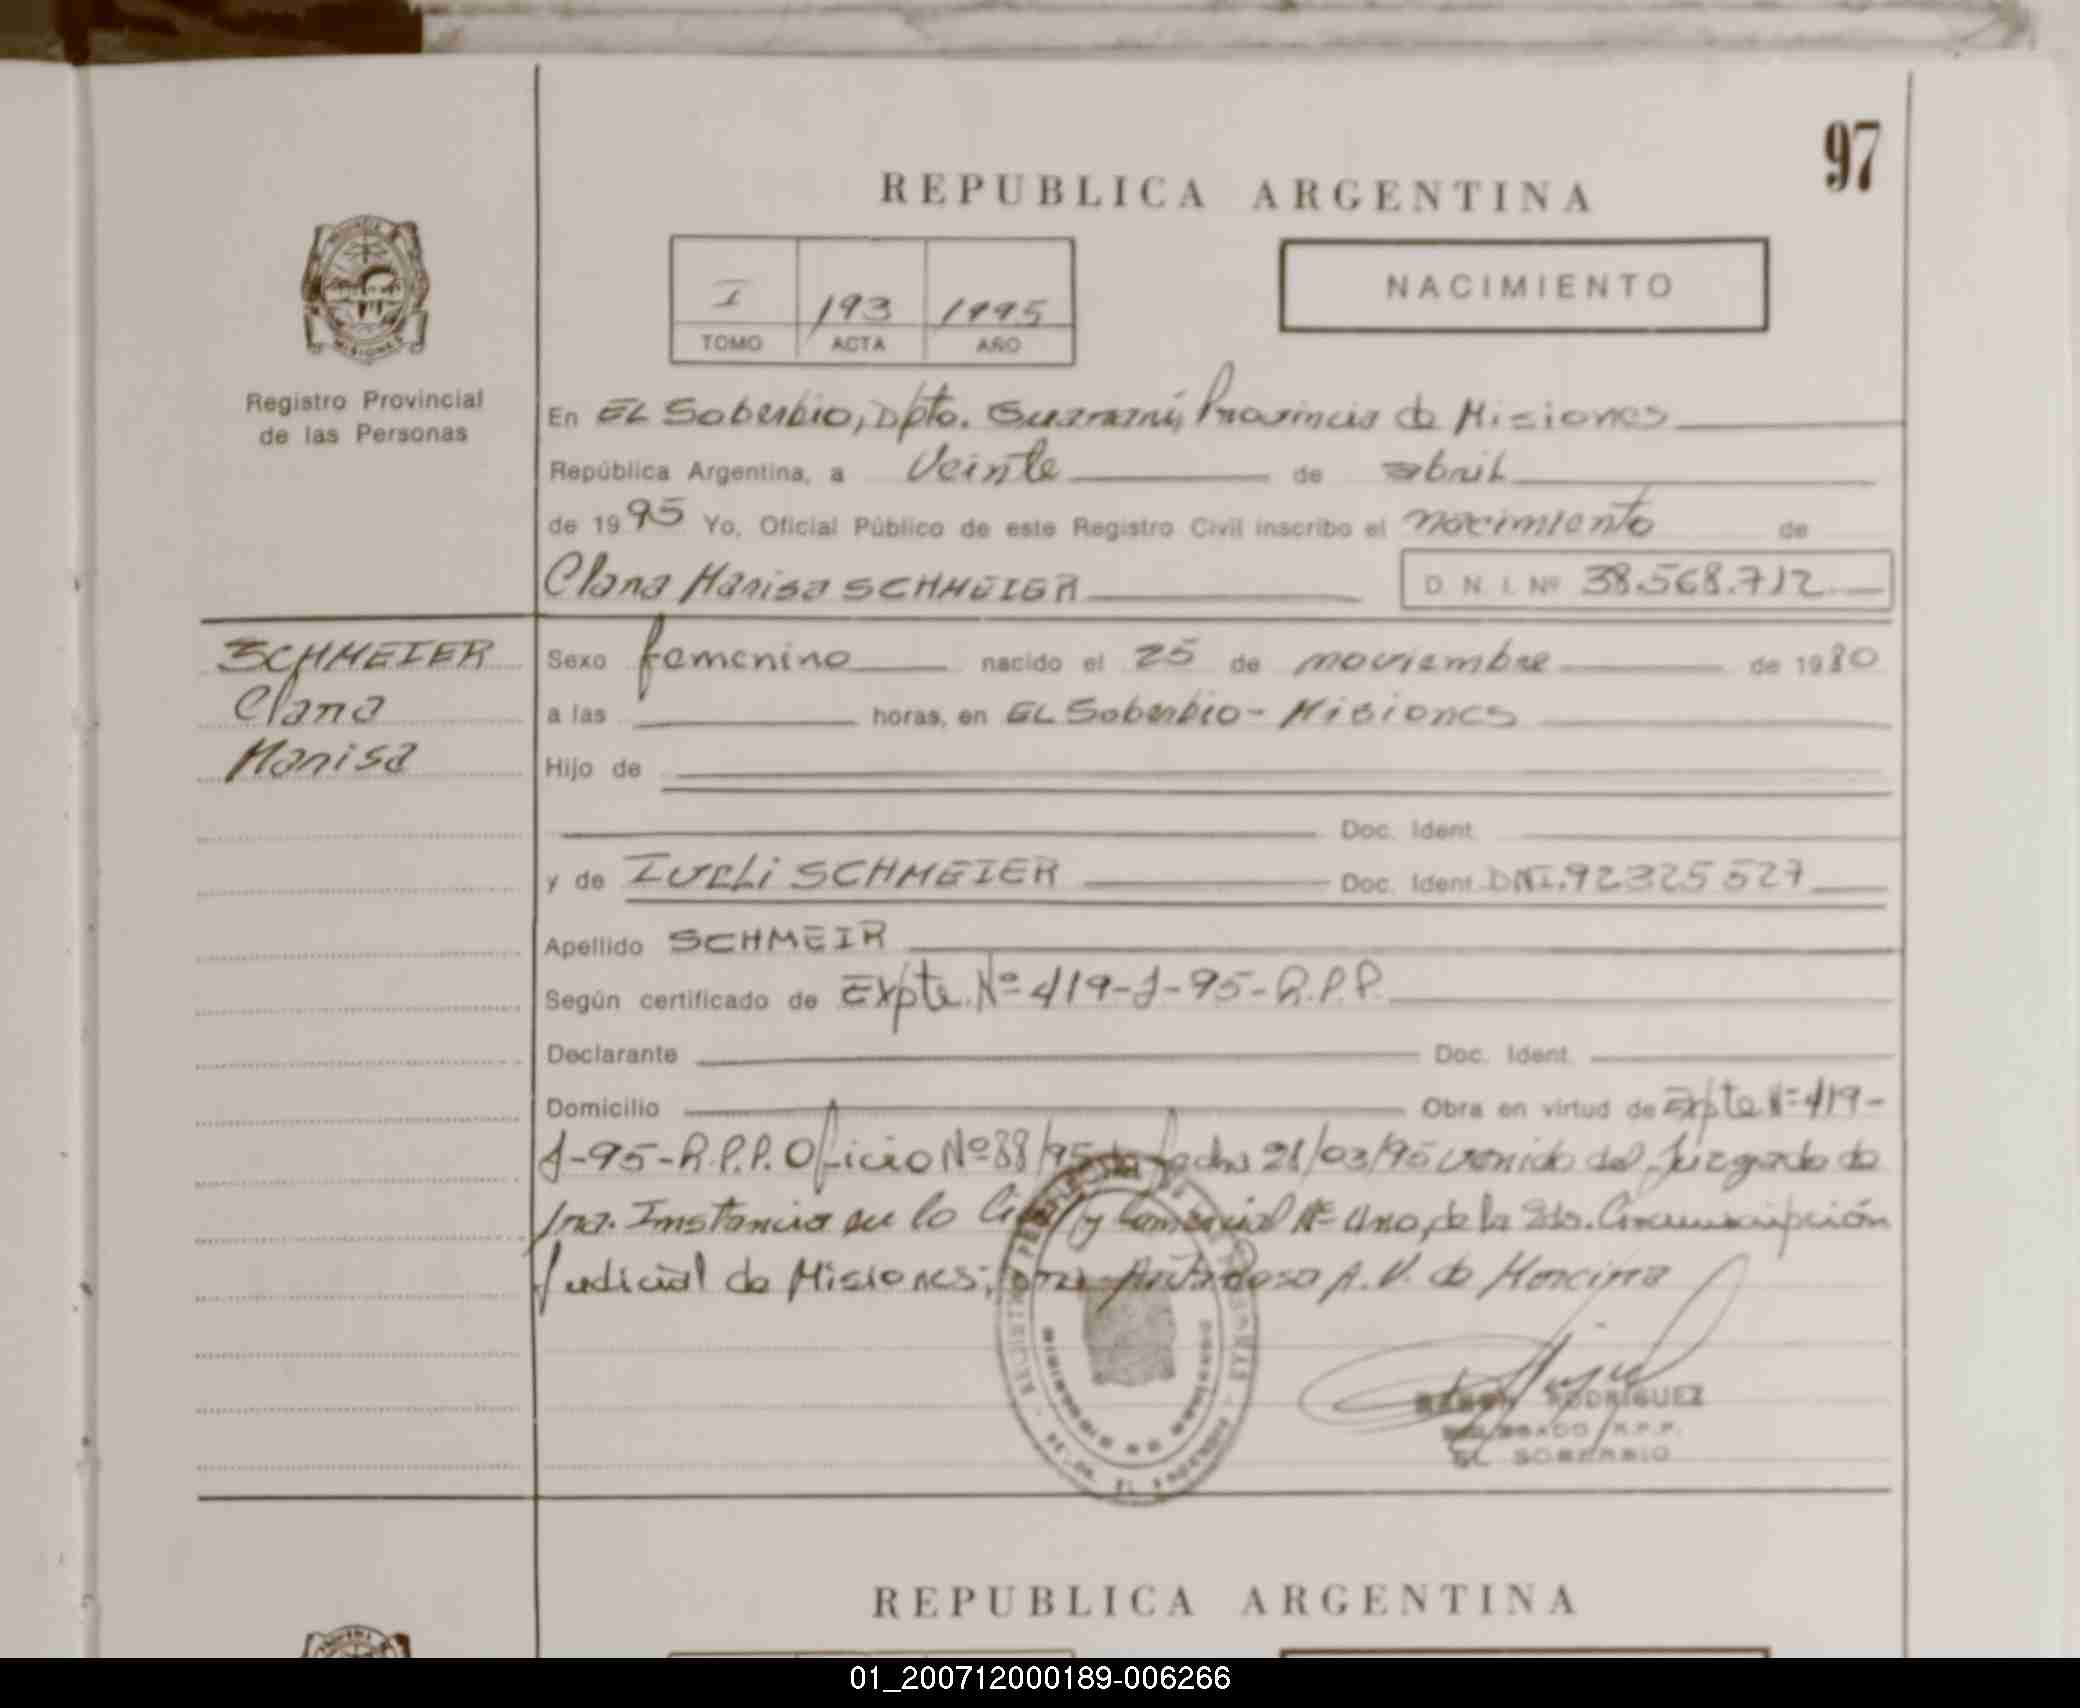 97
REPUBLICA ARGENTINA
I 193 1995
TOMO ACTA AÑO
NACIMIENTO
MISIONES
Registro Provincial
de las Personas
En EL Soberbio, Dpto. Guaraní, Provincia de Misiones
República Argentina, a Veinte de abril
de 1995 Yo, Oficial Público de este Registro Civil inscribo el nacimiento de
Clara Marisa SCHMEIER D. N. I. Nº 38.568.712
SCHMEIER
Clara
Marisa
Sexo femenino nacido el 25 de noviembre de 1980
a las horas, en EL Soberbio - Misiones
Hijo de
Doc. Ident.
y de SCHMEIER Doc. Ident. DNI. 92325527
Apellido SCHMEIR
Según certificado de Expte. Nº 419-J-95-R.P.P.
Declarante Doc. Ident.
Domicilio Obra en virtud de Expte Nº 419-
J-95-R.P.P. Oficio Nº 88/95 de fecha 28/03/95 venido del Juzgado de
1ra. Instancia en lo Civil y Comercial Nº Uno, de la 2da. Circunscripción
Judicial de Misiones; A.V. de
RODRIGUEZ
R.P.P.
EL SOBERBIO
REPUBLICA ARGENTINA
01_200712000189-006266